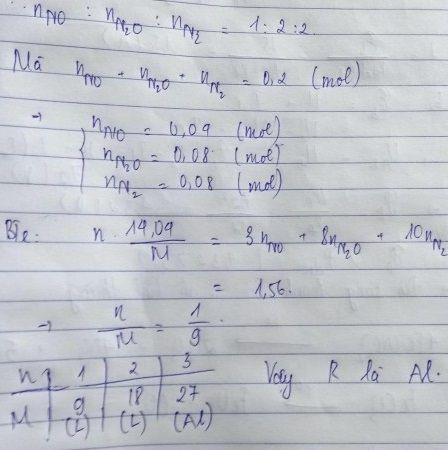 ∵ n_NO : n_N₂O : n_N₂ = 1 : 2 : 2.
Mà n_NO + n_N₂O + n_N₂ = 0,2 (mol)
→ { n_NO = 0,04 (mol)
n_N₂O = 0,08 (mol)
n_N₂ = 0,08 (mol)
BTe: n . 14,04 / M = 3 n_NO + 8n_N₂O + 10n_N₂
= 1,56.
→ n / M = 1 / 9 .
n | 1 | 2 | 3
M | 9 (L) | 18 (L) | 27 (Al) Vậy R là Al.